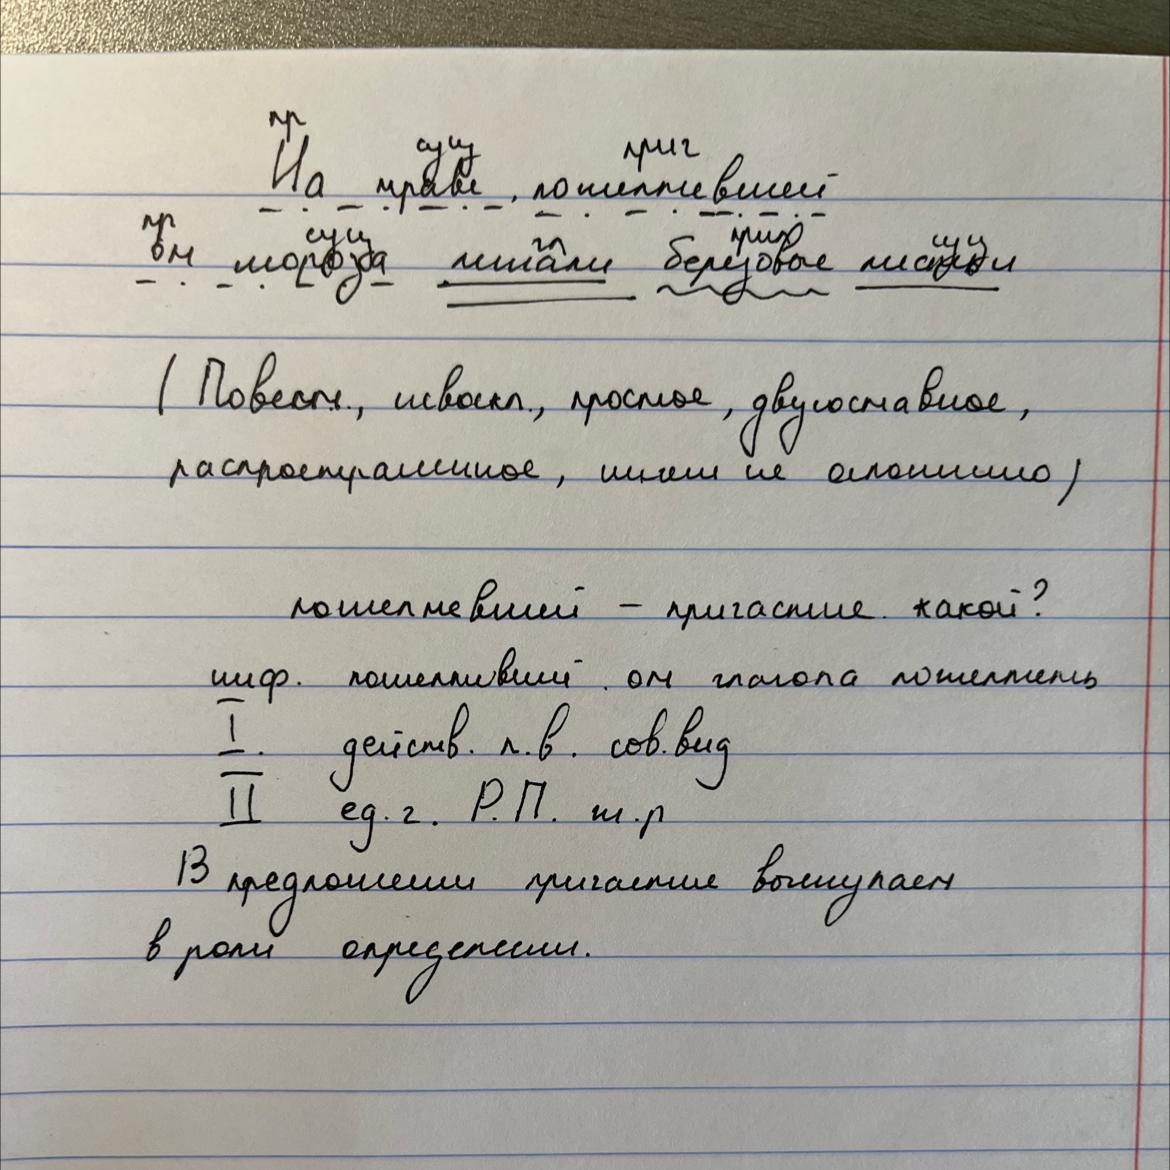 пр сущ прич
На траве, пожелтевшей
пр сущ гл прил сущ
от мороза лежали березовые листики
(Повеств., невоскл., простое, двусоставное,
распространенное, ничем не осложнено)
пожелтевшей – причастие какой?
н.ф. пожелтевший от глагола пожелтеть
I. действ. п.в. сов.вид
II ед.ч. Р.П. ж.р
В предложении причастие выступает
в роли определении.